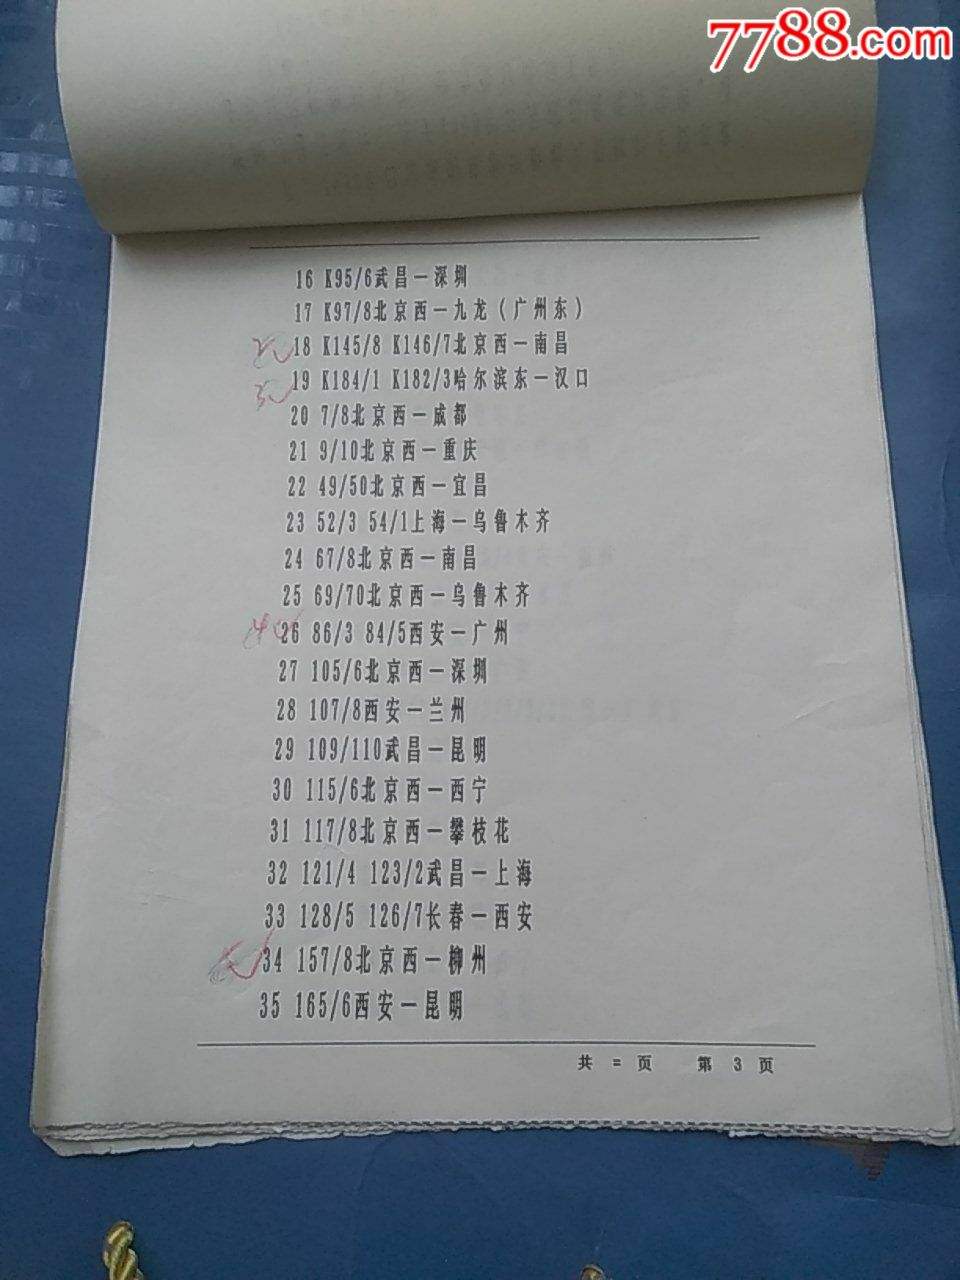 7788.com
16 K95/6武昌—深圳
17 K97/8北京西—九龙(广州东)
18 K145/8 K146/7北京西—南昌
19 K184/1 K182/3哈尔滨东—汉口
20 7/8北京西—成都
21 9/10北京西—重庆
22 49/50北京西—宜昌
23 52/3 54/1上海—乌鲁木齐
24 67/8北京西—南昌
25 69/70北京西—乌鲁木齐
26 86/3 84/5西安—广州
27 105/6北京西—深圳
28 107/8西安—兰州
29 109/110武昌—昆明
30 115/6北京西—西宁
31 117/8北京西—攀枝花
32 121/4 123/2武昌—上海
33 128/5 126/7长春—西安
34 157/8北京西—柳州
35 165/6西安—昆明
共 = 页 第 3 页